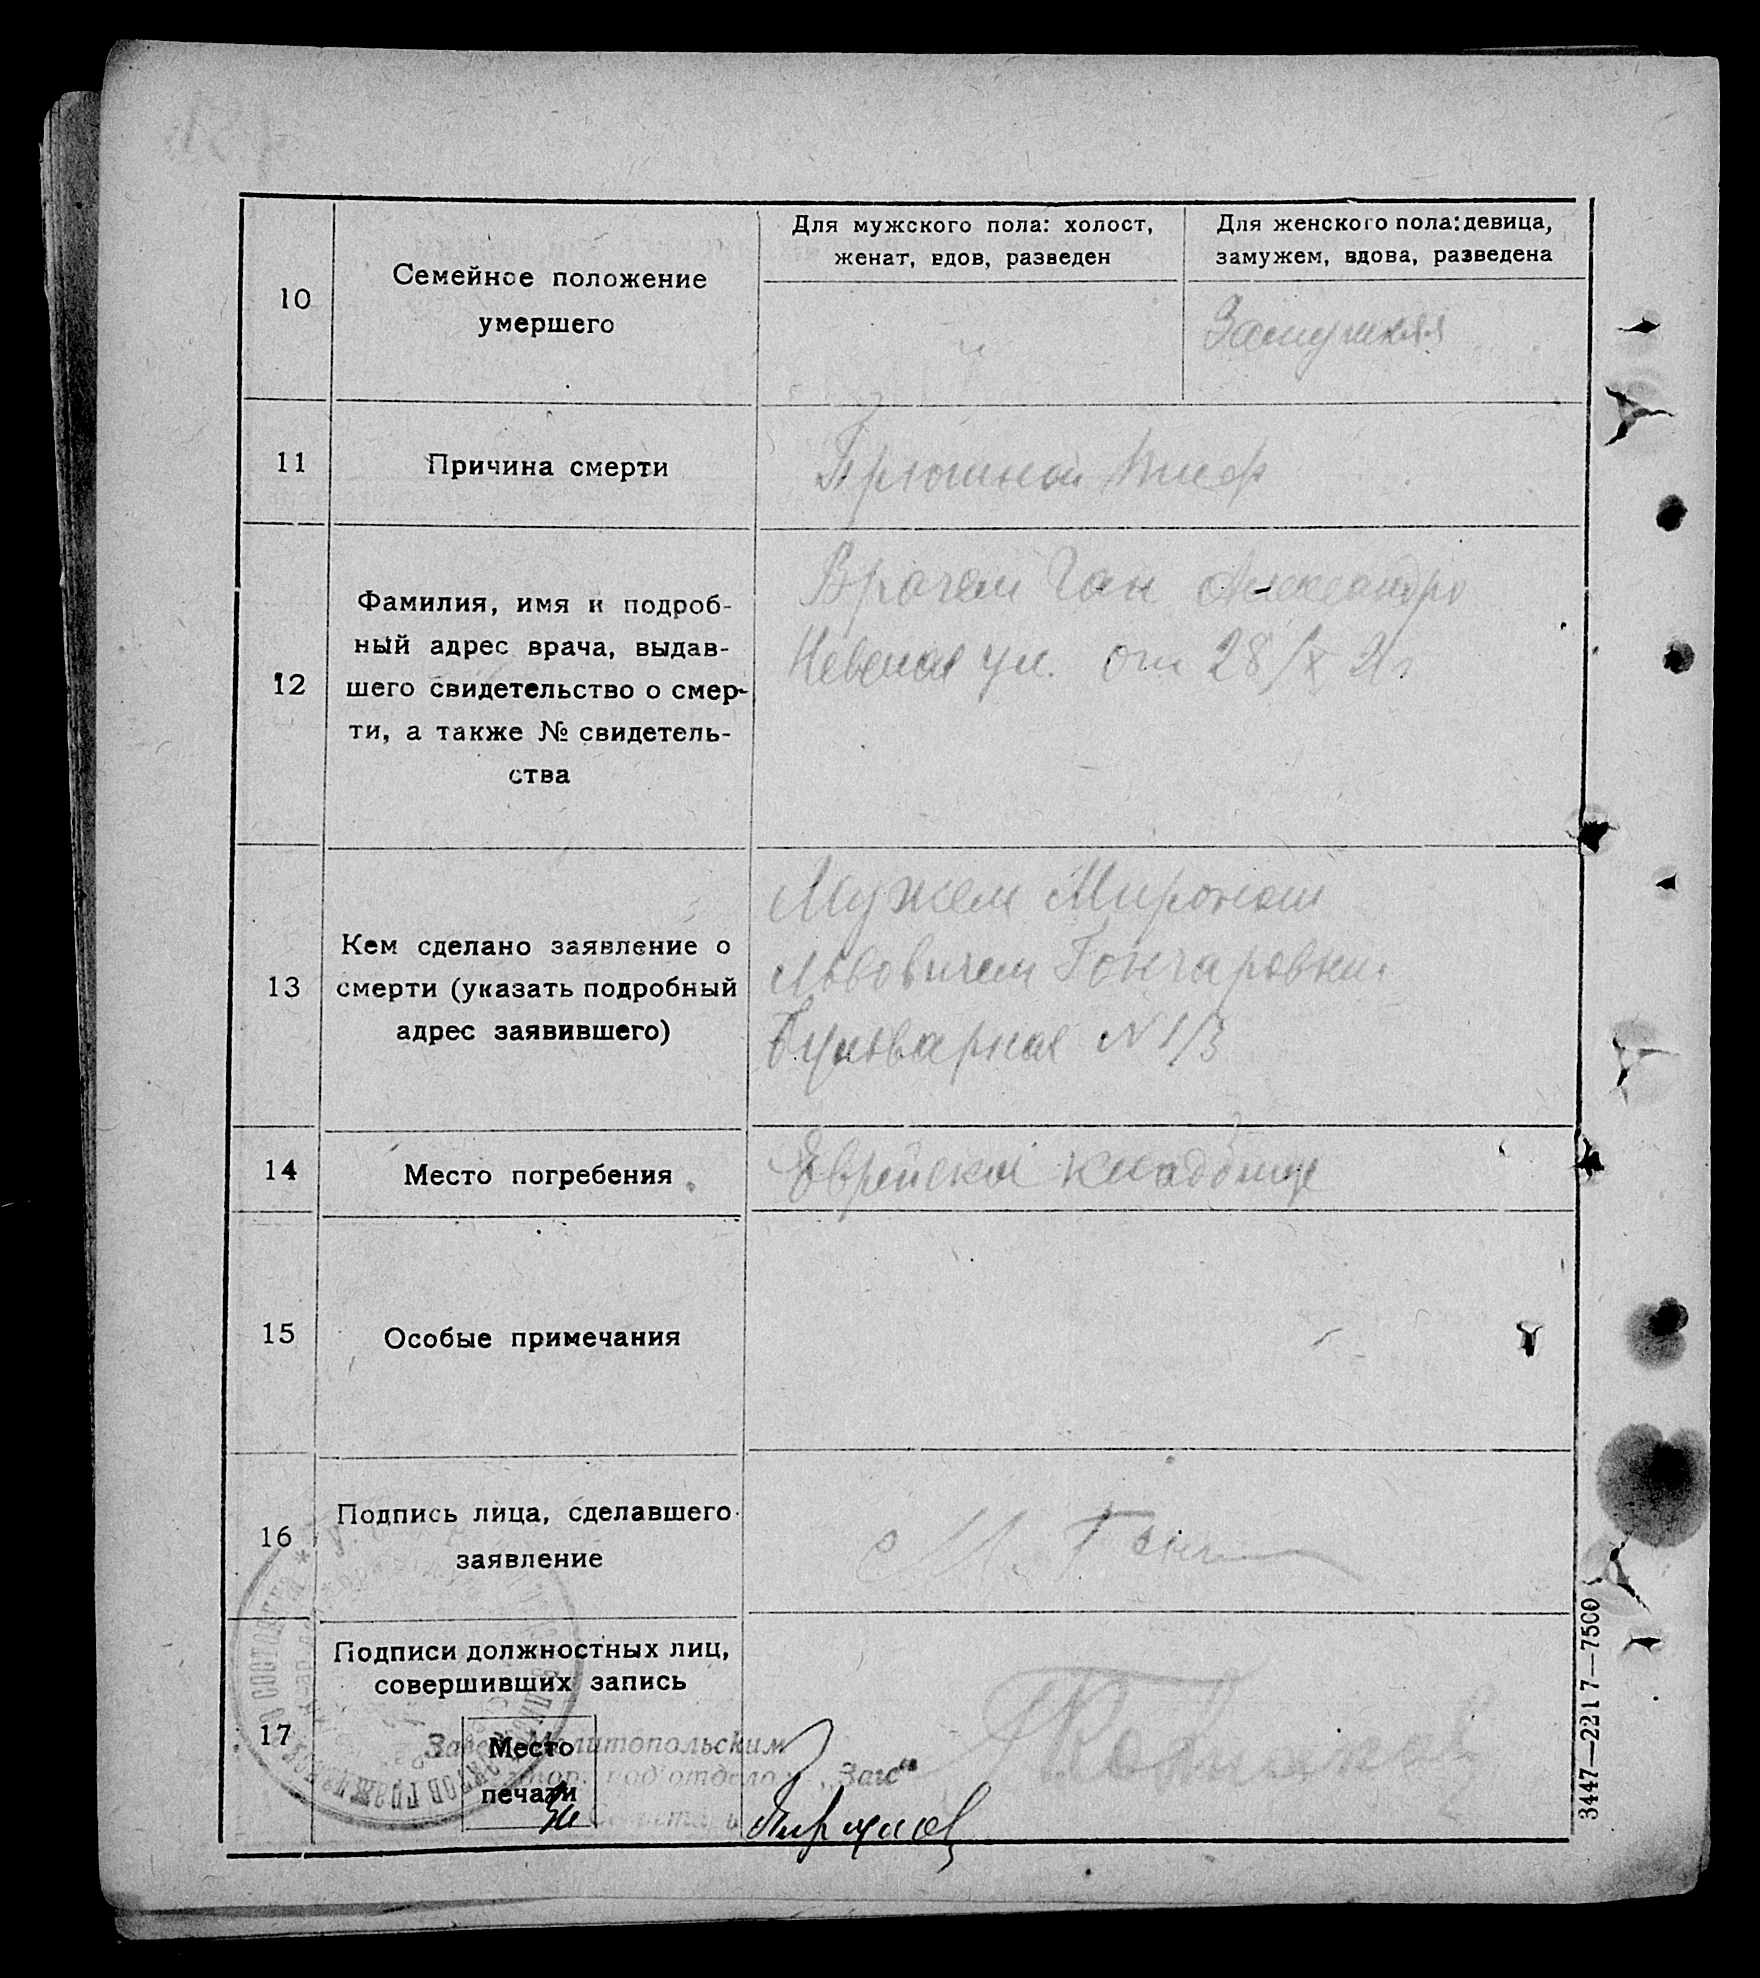 10
Семейное положение
умершего
Для мужского пола: холост,
женат, вдов, разведен
Для женского пола: девица,
замужем, вдова, разведена
Замужняя
11
Причина смерти
Брюшной Тиф
12
Фамилия, имя и подроб-
ный адрес врача, выдав-
шего свидетельство о смер-
ти, а также № свидетель-
ства
Врачем Ган Александро
Невская ул. от 28/X 21 г
13
Кем сделано заявление о
смерти (указать подробный
адрес заявившего)
Мужем Мироном
Львовичем Гончаровым
Бульварная N 1/3
14
Место погребения
Еврейское кладбище
15
Особые примечания
16
Подпись лица, сделавшего
заявление
М. Гонч
17
Подписи должностных лиц,
совершивших запись
Место
печати
Зав. Мелитопольским
под'отделом „Загс"
Секретарь
3447—2217—7500